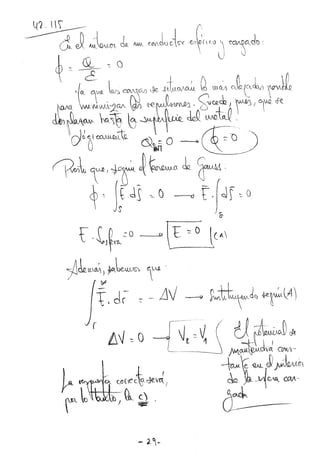 42.115
En el interior de un conductor esférico y cargado:
ϕ = Q/ε = 0
Ya que las cargas se situarán lo mas alejadas posible
para minimizar las repulsiones. Sucede, pues, que se
desplazan hasta la superficie del metal.
Lógicamente Qint = 0 → ϕ = 0
Puesto que, según el teorema de Gauss:
ϕ = ∫s E · dS = 0 → E · ∫s dS = 0
E · Sesfera = 0 → E = 0 (A)
Además, sabemos que:
∫r E · dr = - ΔV → Sustituyendo según (A)
ΔV = 0 → V2 = V1
El potencial se
mantendrá cons-
tante en el interior
de la esfera car-
gada
La respuesta correcta será,
por lo tanto, la c).
- 29 -